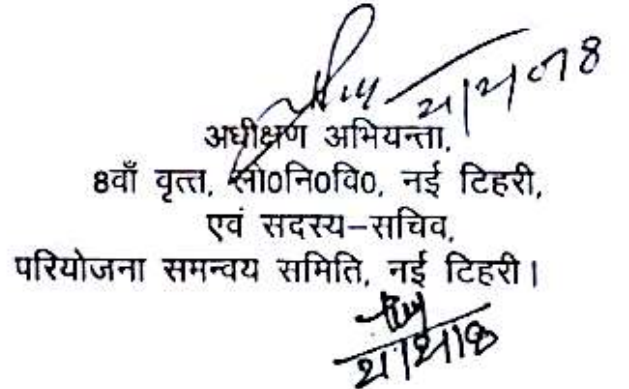 अधीक्षण अभियन्ता,
8वाँ वृत्त, लो0नि0वि0, नई टिहरी,
एवं सदस्य–सचिव,
परियोजना समन्वय समिति, नई टिहरी।